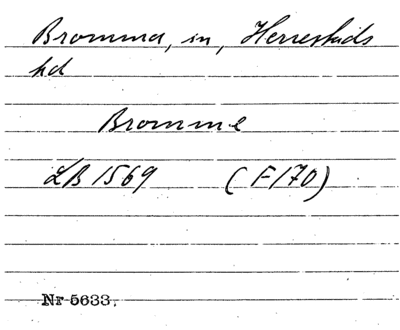 Bromma, sn, Herrestads
hd
Bromme
LB 1569 (F170)
Nr 5633.